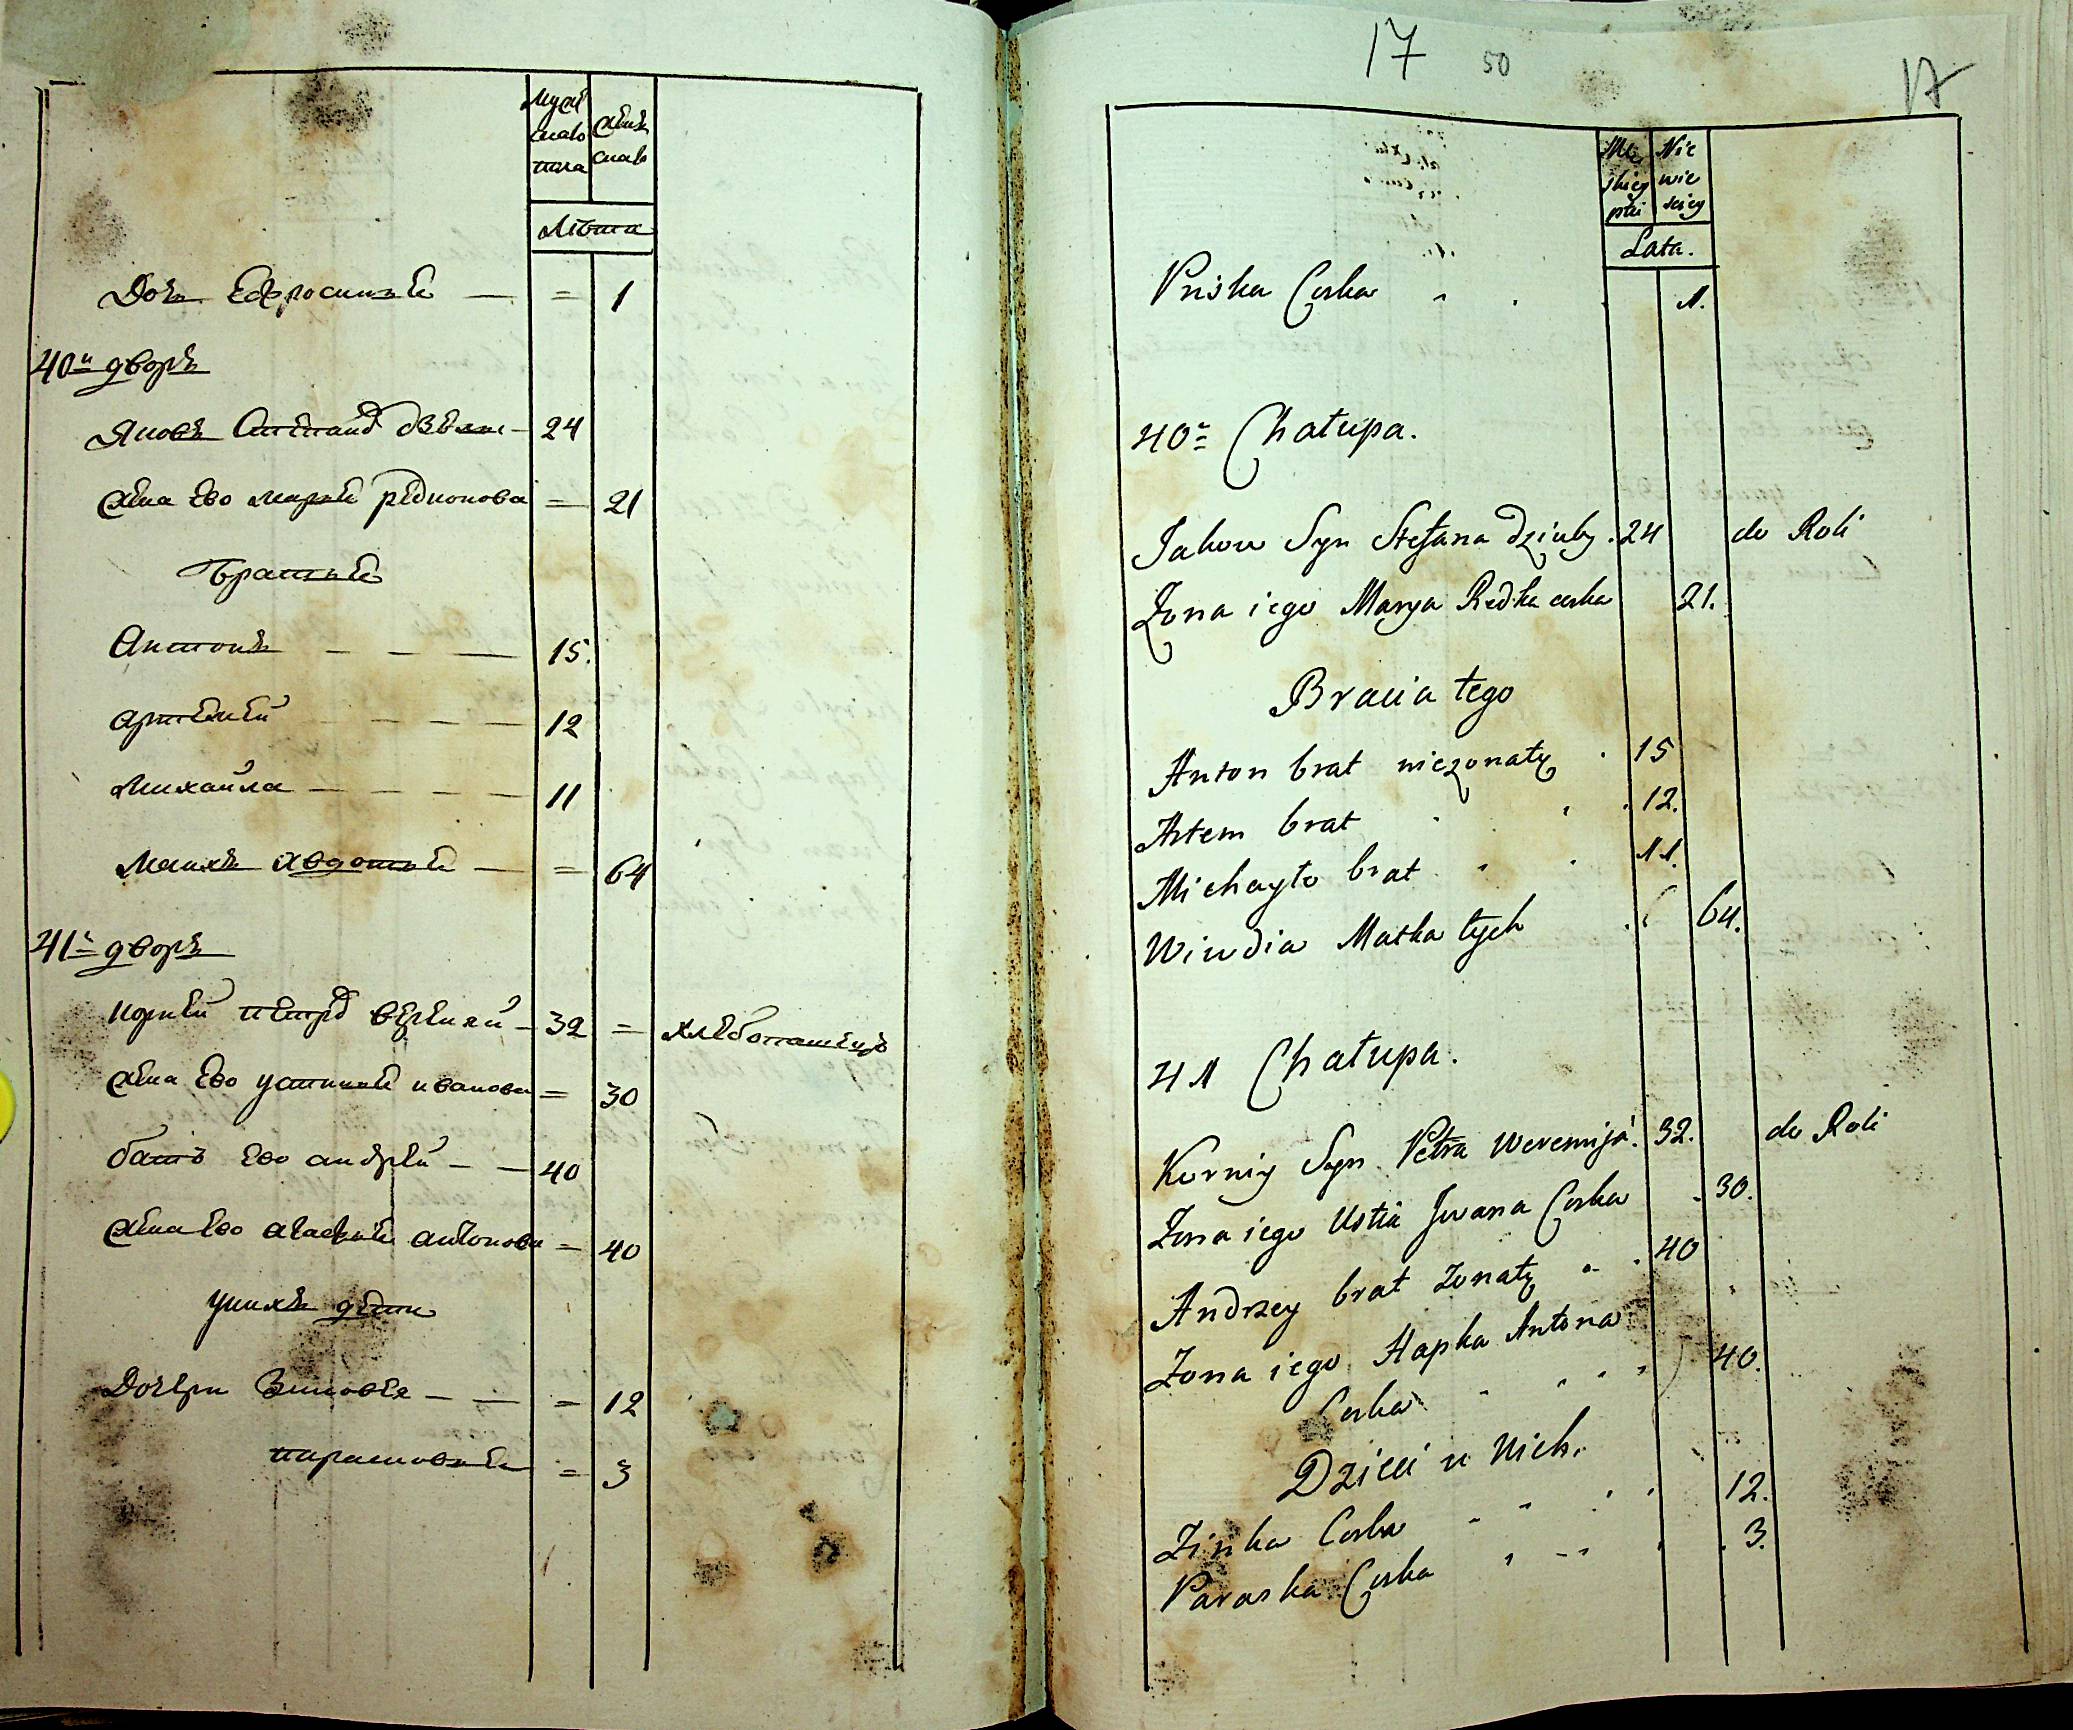 Муже
ска
пола
Женс
каго
Лѣта
Дочь Ефросинья — = 1
40й дворъ
Яковъ Степанов Дзюба - 24
Жена ево Марья Редионова = 21
Братья
Антонъ - - — 15.
Артемей - - - — 12
Михайла - - - — 11
Мать их Авдотья — = 64
41й дворъ
Корней Петров Веремей - 32 = хлебопашец
Жена ево Устинья Иванова = 30
Брат ево Андрей - — 40
Жена ево Агафья Антонова = 40
у них дети
Дочери Зиновья - — = 12
Парасковья = 3
17 50 17
Mę
skiey
płci
Nie
wie
sciey
Lata.
Priska Corka 1.
40a Chałupa.
Jakow Syn Stefana Dziuby. 24 do Roli
Zona iego Marya Redka corka 21.
Bracia tego
Anton brat niezonaty 15
Artem brat 12.
Michayło brat 11.
Wiudia Matka tych 64.
41 Chałupa.
Korniy Syn Petra Weremija. 32. do Roli
Zona iego Ustia Jwana Corka 30.
Andrzey brat zonaty 40
Zona iego Hapka Antona
Corka 40.
Dzieci u Nich.
Zinka Corka 12.
Paraska Corka 3.